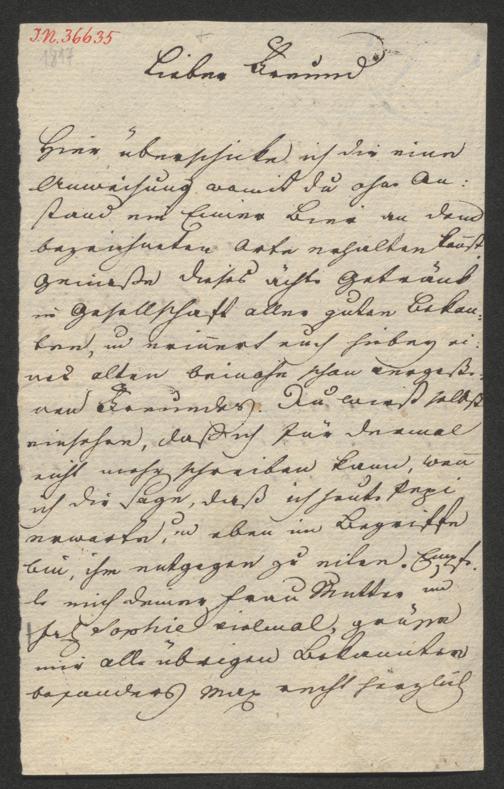 I.N. 36635
1817
Lieber Freund
Hier überschicke ich dir eine
Anweisung womit du ohne An:
stand ein Eimer Bier an dem
bezeichneten Orte erhalten kannst
genieße dieses ächte Getränk
in Gesellschaft aller guten Bekan:
ten, u erinnert euch hiebey ei:
nes alten beinahe schon vergeße:
nen Freundes. Du wirst selbst
einsehen, daß ich für dermal
nicht mehr schreiben kann, wenn
ich dir sage, daß ich heute Pepi
erwarte, u eben im Begriffe
bin, ihm entgegen zu eilen. Empfe:
le mich deiner Frau Mutter und
Sophie vielmal, grüsse
mir alle übrigen Bekannten
besonders Max recht herzlich